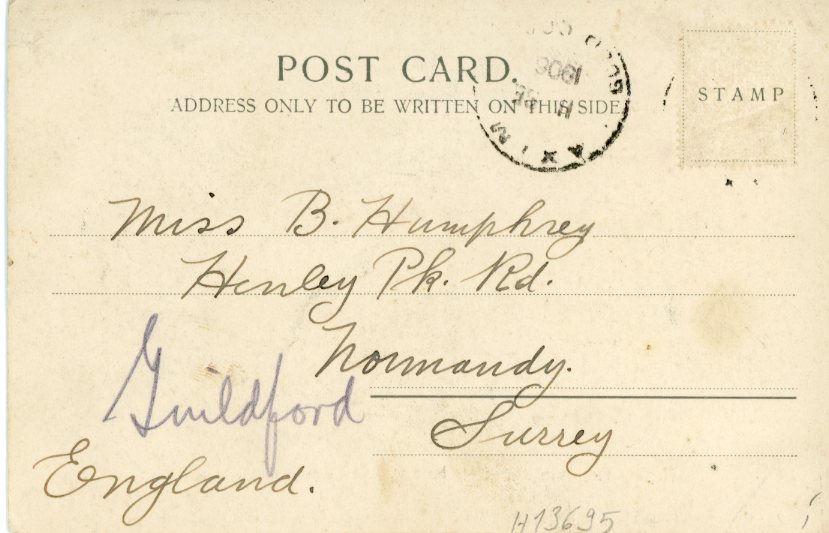 POST CARD.
ADDRESS ONLY TO BE WRITTEN ON THIS SIDE
STAMP
AXIM
1906
GOLD COS
Miss B. Humphrey
Henley Pk. Rd.
Normandy.
Guildford
Surrey
England.
H13695